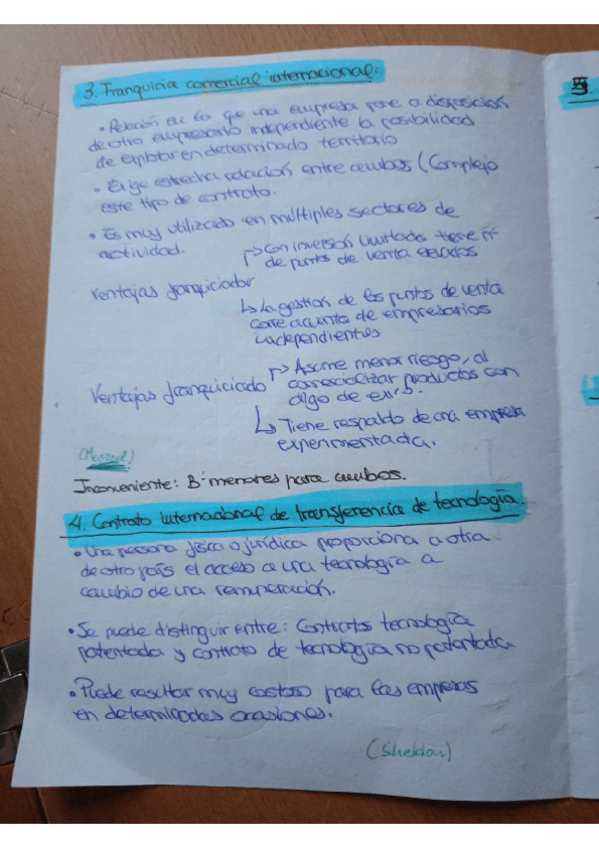 3. Franquicia comercial internacional.
• Relación en la que una empresa pone a disposición
de otro empresario independiente la posibilidad
de explotar en determinado territorio
• Exige estrecha relación entre ambos (Complejo
este tipo de contrato.
• Es muy utilizado en múltiples sectores de
actividad.
Ventajas franquiciador
↱> Con inversión limitada tiene nº
de puntos de venta elevados
↳ La gestión de los puntos de venta
corre a cuenta de empresarios
independientes
Ventajas franquiciado
↱> Asume menor riesgo, al
comercializar productos con
algo de exi.
↳ Tiene respaldo de una empresa
experimentada.
Inconveniente: Bº menores para ambos.
4. Contrato internacional de transferencia de tecnología.
• Una persona física o jurídica proporciona a otra
de otro país el acceso a una tecnología a
cambio de una remuneración.
• Se puede distinguir entre: Contratos tecnología
patentada y contrato de tecnología no patentada
• Puede resultar muy costoso para las empresas
en determinadas ocasiones.
(Sheldon)
5.